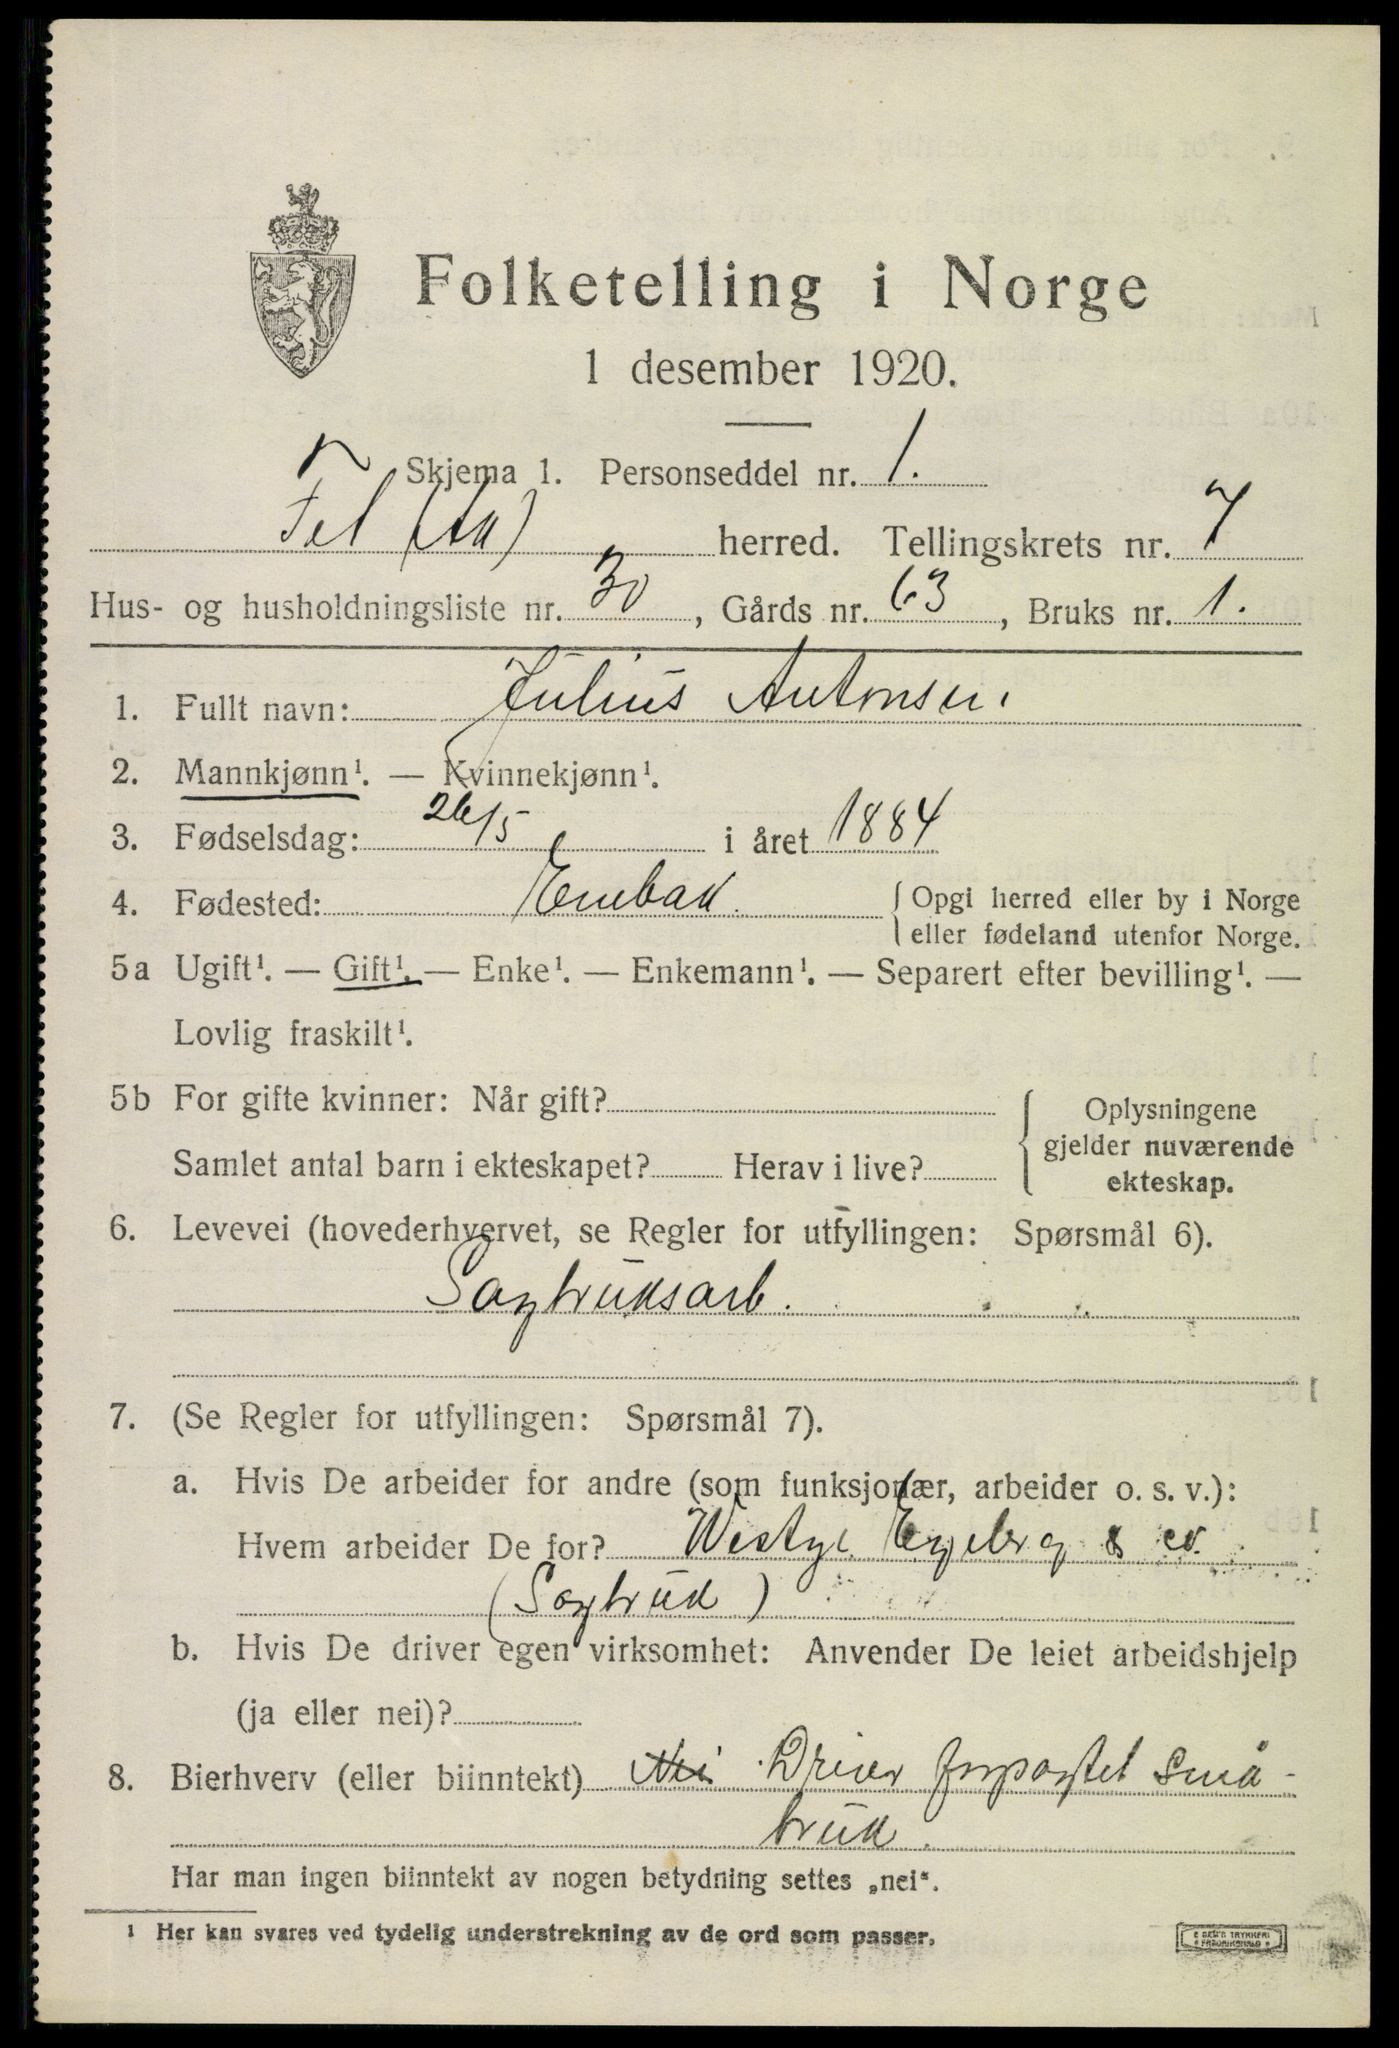 Folketelling i Norge
1 desember 1920.
Skjema 1. Personseddel nr. 1.
Fet (Ak) herred. Tellingskrets nr. 7
Hus- og husholdningsliste nr. 30, Gårds nr. 63, Bruks nr. 1.
1. Fullt navn: Julius Antonsen.
2. Mannkjønn¹. — Kvinnekjønn¹.
3. Fødselsdag: 26/5 i året 1884
4. Fødested: Enebak. Opgi herred eller by i Norge
eller fødeland utenfor Norge.
5a Ugift¹. — Gift¹. — Enke¹. — Enkemann¹. — Separert efter bevilling¹. —
Lovlig fraskilt¹.
5b For gifte kvinner: Når gift? Oplysningene
gjelder nuværende
Samlet antal barn i ekteskapet? Herav i live? ekteskap.
6. Levevei (hovederhvervet, se Regler for utfyllingen: Spørsmål 6).
Sagbruksarb.
7. (Se Regler for utfyllingen: Spørsmål 7).
a. Hvis De arbeider for andre (som funksjonær, arbeider o. s. v.):
Hvem arbeider De for? Westye Egeberg & co.
(Sagbruk)
b. Hvis De driver egen virksomhet: Anvender De leiet arbeidshjelp
(ja eller nei)?
8. Bierhverv (eller biinntekt) Nei Driver forpagtet små-
bruk.
Har man ingen biinntekt av nogen betydning settes „nei“.
¹ Her kan svares ved tydelig understrekning av de ord som passer.
SEM'S TRYKKERI
FREDRIKSHALD